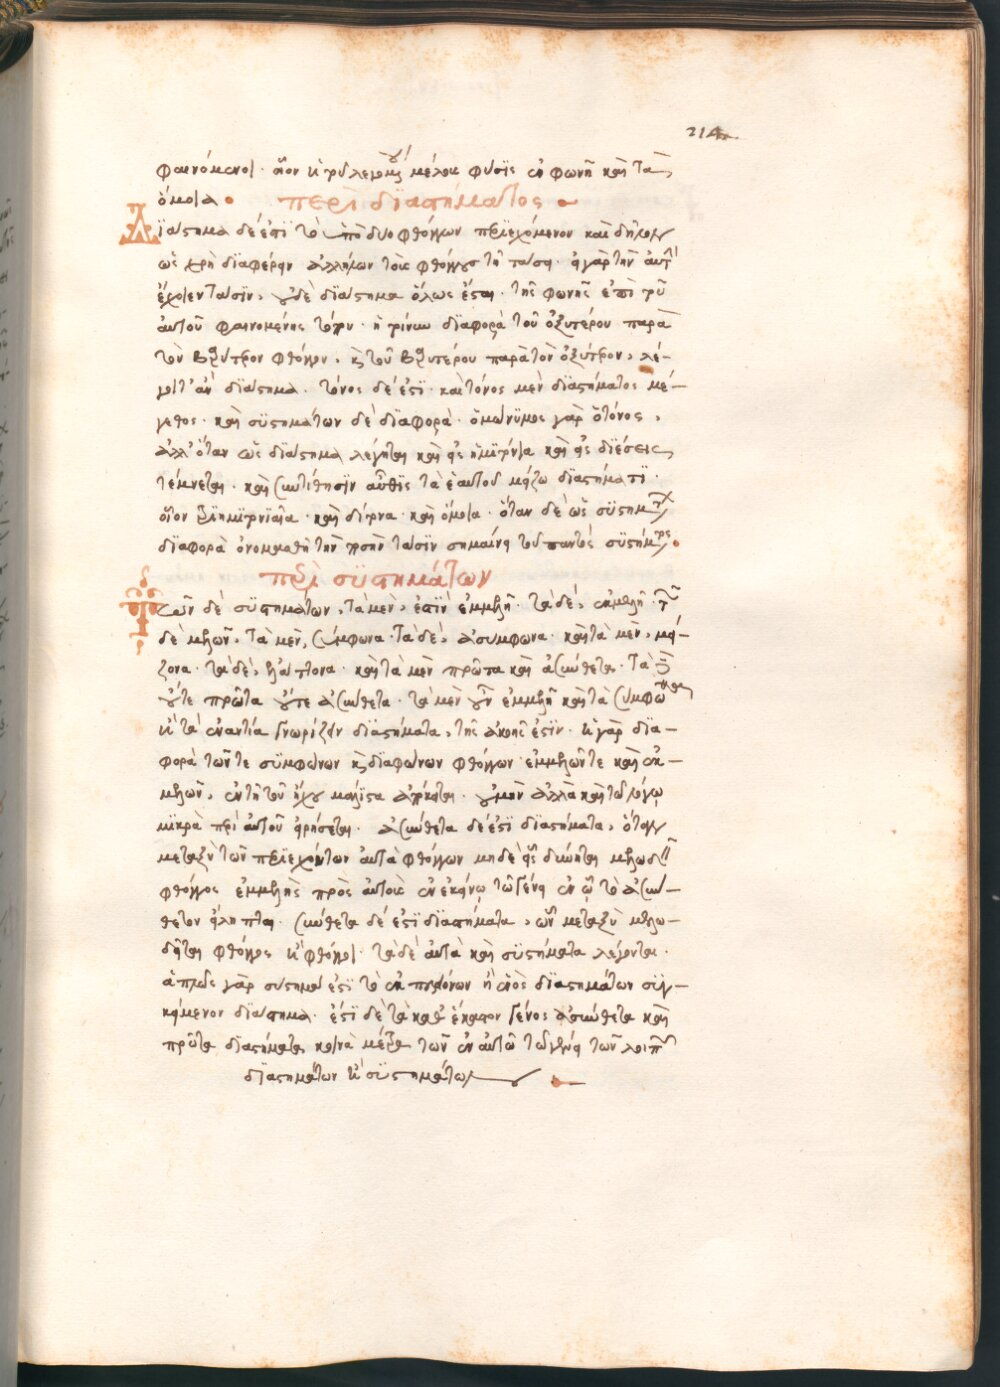 214
φαινόμενοι. οἷον ἡ τοῦ λεγομένου μέλους φύσις ἐν φωνῇ καὶ τὰ
ὅμοια. περὶ διαστήματος
Διάστημα δέ ἐστι τὸ ὑπὸ δυο φθόγγων περιεχόμενον καὶ δῆλον
ὡς χρὴ διαφέρειν ἀλλήλων τοὺς φθόγγους τῇ τάσει. εἰ γὰρ τὴν αὐτὴν
ἔχοιεν τάσιν, οὐδὲ διάστημα ὅλως ἔσται. τῆς φωνῆς ἐπὶ τοῦ
αὐτοῦ φαινομένης τόπου. ἡ γίνου διαφορὰ τοῦ ὀξυτέρου παρὰ
τὸν βαρύτερον φθόγγον, καὶ τοῦ βαρυτέρου παρὰ τὸν ὀξύτερον, λέ-
γοιτ' ἂν διάστημα. τόνος δέ ἐστι. καὶ τόνος μὲν διαστήματος μέ-
γεθος. καὶ συστημάτων δὲ διαφορά. ὁμώνυμος γὰρ ὁ τόνος,
ἀλλ' ὅταν ὡς διάστημα λέγηται καὶ εἰς ἡμιτόνια καὶ εἰς διέσεις
τέμνεται. καὶ συντίθησιν αὖθις τὰ ἑαυτοῦ μείζω διαστήματι.
οἷον τριημιτονιαῖα. καὶ δίτονα. καὶ ὅμοια. ὅταν δὲ ὡς συστημάτων
διαφορὰ ὀνομασθῇ τὴν ποσὴν τάσιν σημαίνει τοῦ παντὸς συστήματος.
περὶ συστημάτων
Τῶν δὲ συστημάτων, τὰ μέν, ἐστὶν ἐμμελῆ. τὰ δέ, ἐκμελῆ. τῶν
δὲ μελῶν, τὰ μὲν, σύμφωνα. τὰ δέ, ἀσύμφωνα. καὶ τὰ μὲν, μεί-
ζονα. τὰ δὲ, ἐλάττονα. καὶ τὰ μὲν πρῶτα καὶ ἀσύνθετα. τὰ δὲ
οὔτε πρῶτα οὔτε ἀσύνθετα. τὰ μὲν οὖν ἐμμελῆ καὶ τὰ σύμφωνα
ἢ τὰ ἐναντία γνωρίζειν διαστήματα, τῆς ἀκοῆς ἐστίν. ἡ γὰρ δια-
φορὰ τῶν τε συμφώνων καὶ διαφώνων φθόγγων ἐμμελῶν τε καὶ ἐκ-
μελῶν, ἐν τῇ τοῦ ἤχου μάλιστα ἀρκεῖται. οὐ μὴν ἀλλὰ καὶ τῷ λόγῳ
μικρὰ περὶ αὐτοῦ εἰρήσεται. ἀσύνθετα δέ ἐστι διαστήματα, ὅταν
μεταξὺ τῶν περιεχόντων αὐτὰ φθόγγων μηδὲ εἷς δύνηται μελωδεῖν
φθόγγος ἐμμελὴς πρὸς αὐτοὺς ἐν ἐκείνῳ τῷ γένει ἐν ᾧ τὸ ἀσύν-
θετον εἴληπται. σύνθετα δέ ἐστι διαστήματα, ὧν μεταξὺ μελω-
δεῖται φθόγγος ἢ φθόγγοι. τὰ δὲ αὐτὰ καὶ συστήματα λέγονται.
ἁπλῶς γὰρ συστημά ἐστι τὸ ἐκ πλειόνων ἢ ἑνὸς διαστημάτων συγ-
κείμενον διάστημα. ἔστι δὲ τὰ καθ' ἕκαστον γένος ἀσύνθετα καὶ
πρῶτα διαστήματα, κοινὰ μέτρα τῶν ἐν αὐτῷ τῷ γένει τῶν λοιπῶν
διαστημάτων ἢ συστημάτων